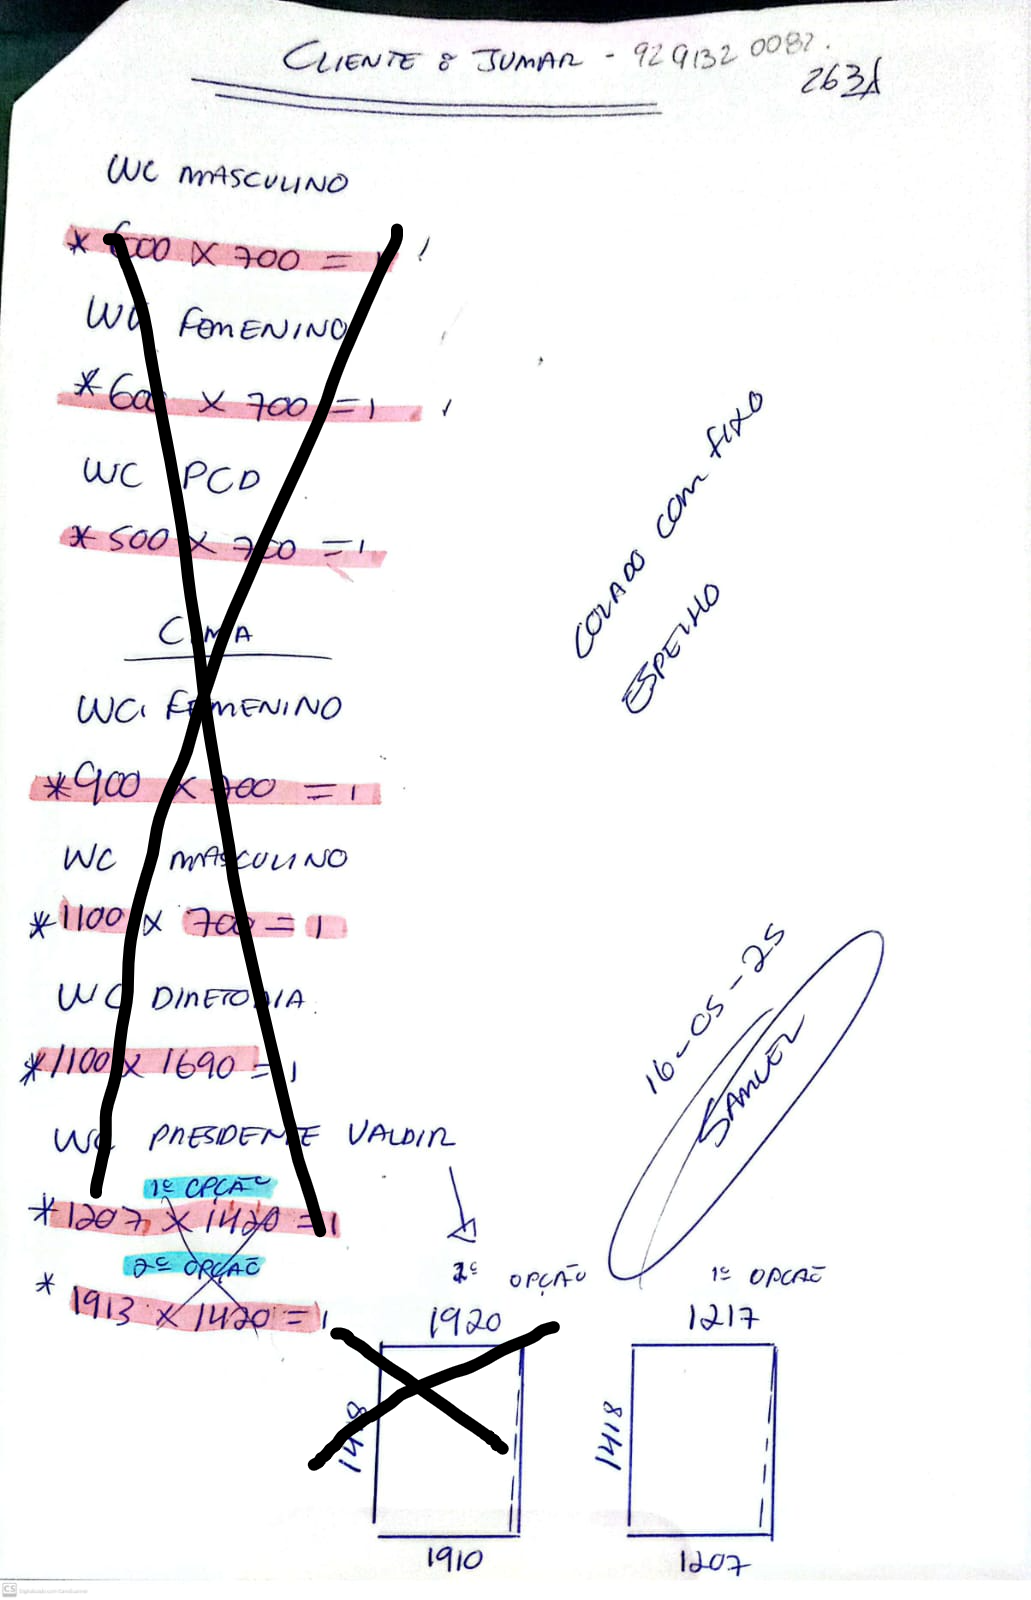 CLIENTE : JUMAR - 929132 0082.
263A
WC MASCULINO
* 600 X 700 = 1
WC FEMENINO
* 600 X 700 = 1
WC PCD
* 500 X 700 = 1
CIMA
WC FEMENINO
* 900 X 700 = 1
WC MASCULINO
* 1100 X 700 = 1
WC DIRETORIA
* 1100 X 1690 = 1
WC PRESIDENTE VALDIR
1º OPÇÃO
* 1207 X 1420 = 1
2º OPÇÃO
* 1913 X 1420 = 1
COLADO COM FIXO
ESPELHO
16-05-25
SAMUEL
2º OPÇÃO
1920
1418
1910
1º OPCÃO
1217
1418
1207
CS Digitalizado com CamScanner